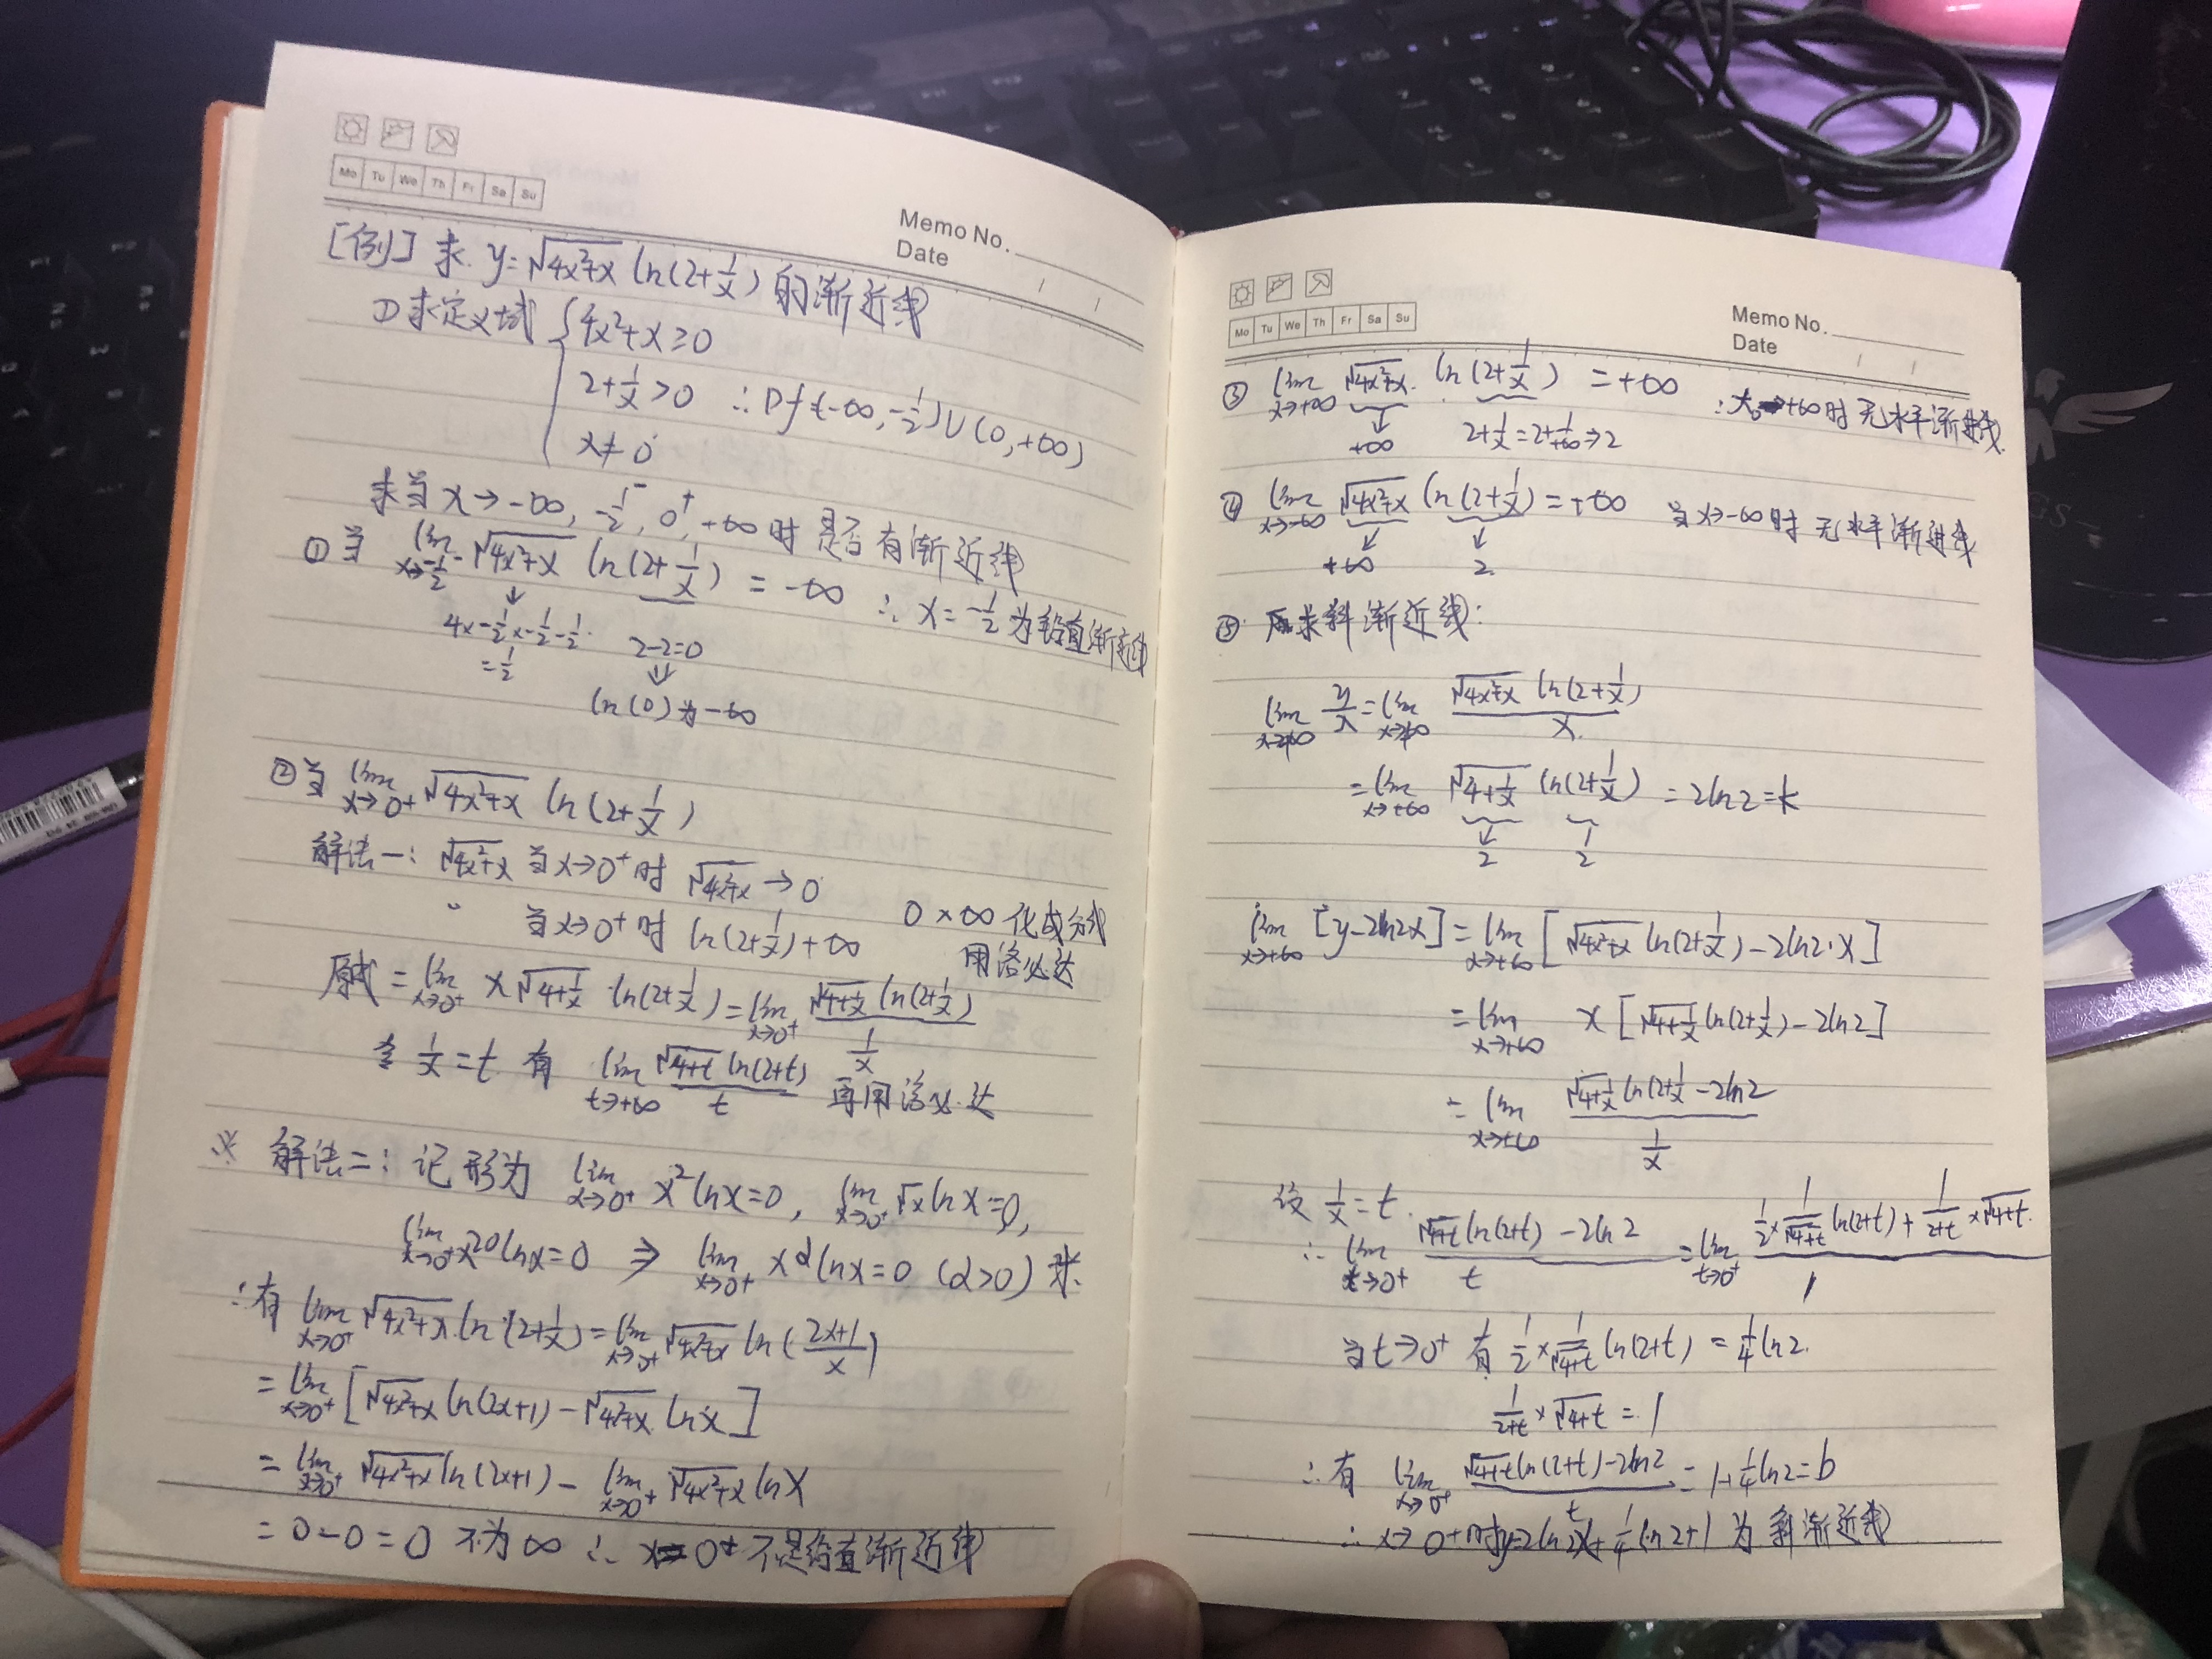 Mo Tu We Th Fr Sa Su
Memo No.
Date / /
[例] 求 y=√(4x²+x) ln(2+1/x) 的渐近线
① 求定义域 { 4x²+x≥0
2+1/x>0 ∴ Df(-∞, -1/2)∪(0,+∞)
x≠0
求当 x→-∞, -1/2⁻, 0⁺, +∞时是否有渐近线
① 当 lim x→-1/2⁻ √(4x²+x) ln(2+1/x) = -∞ ∴ x=-1/2 为铅直渐近线
4×-1/2×-1/2-1/2 2-2=0
=1/2
ln(0)为-∞
② 当 lim x→0⁺ √(4x²+x) ln(2+1/x)
解法一: √(4x²+x) 当x→0⁺时 √(4x²+x)→0
当x→0⁺时 ln(2+1/x)+∞ 0×∞ 化成分式
用洛必达
原式= lim x→0⁺ x√(4+1/x) ·ln(2+1/x)= lim x→0⁺ √(4+1/x) ln(2+1/x) / (1/x)
令 1/x=t 有 lim t→+∞ √(4+t) ln(2+t) / t 再用洛必达
※ 解法二: 记形为 lim x→0⁺ x²lnx=0, lim x→0⁺ √x lnx=0,
lim x→0⁺ x²⁰lnx=0 ⇒ lim x→0⁺ x^α lnx=0 (α>0) 求
∴有 lim x→0⁺ √(4x²+x) ln(2+1/x)= lim x→0⁺ √(4x²+x) ln((2x+1)/x)
= lim x→0⁺ [√(4x²+x) ln(2x+1) - √(4x²+x) lnx]
= lim x→0⁺ √(4x²+x) ln(2x+1) - lim x→0⁺ √(4x²+x) lnx
=0-0=0 不为∞ ∴ x=0⁺不是铅直渐近线
Mo Tu We Th Fr Sa Su
Memo No.
Date / /
③ lim x→+∞ √(4x²+x) · ln(2+1/x) = +∞ ∴x→+∞时无水平渐进线
+∞ 2+1/x=2+1/+∞⇒2
④ lim x→-∞ √(4x²+x) ln(2+1/x)=+∞ 当x→-∞时无水平渐进线
+∞ 2
⑤ 求斜渐近线:
lim x→+∞ y/x= lim x→+∞ √(4x²+x) ln(2+1/x) / x
= lim x→+∞ √(4+1/x) ln(2+1/x) = 2ln2=k
2 2
lim x→+∞ [y-2ln2x]= lim x→+∞ [√(4x²+x) ln(2+1/x)-2ln2·x]
= lim x→+∞ x[√(4+1/x) ln(2+1/x)-2ln2]
= lim x→+∞ √(4+1/x) ln(2+1/x -2ln2 / (1/x)
设 1/x=t
∴ lim t→0⁺ √(4+t) ln(2+t) -2ln2 / t = lim t→0⁺ 1/2×1/√(4+t) ln(2+t)+1/(2+t)×√(4+t) / 1
当t→0⁺ 有 1/2×1/√(4+t) ln(2+t) = 1/4 ln2
1/(2+t)×√(4+t) = 1
∴有 lim x→0⁺ √(4+t) ln(2+t)-2ln2 / t = 1+1/4 ln2=b
∴ x→0+时y=2ln2x+1/4 ln2+1 为斜渐近线